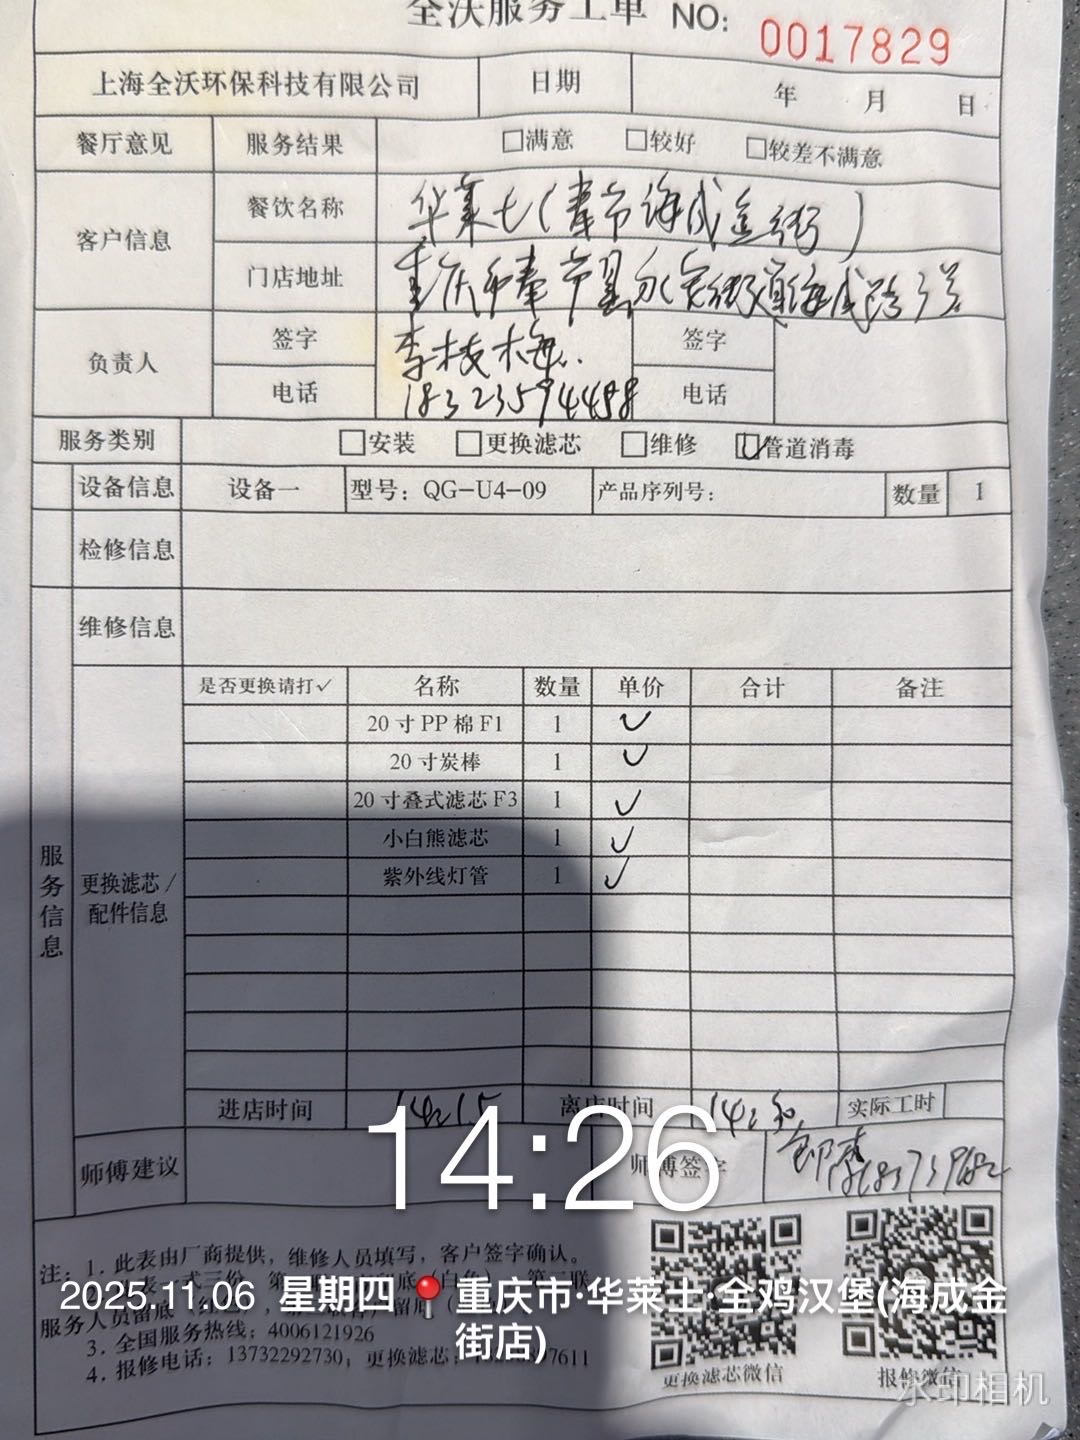 全沃服务工单 NO: 0017829
上海全沃环保科技有限公司 日期 年 月 日
餐厅意见 服务结果 □满意 □较好 □较差不满意
客户信息 餐饮名称 华莱士(奉节海成金街)
门店地址 重庆市奉节县永安街道海成路
负责人 签字 李枝梅 签字
电话 18323594488 电话
服务类别 □安装 □更换滤芯 □维修 ☑管道消毒
设备信息 设备一 型号：QG-U4-09 产品序列号： 数量 1
检修信息
维修信息
是否更换请打✓ 名称 数量 单价 合计 备注
20寸PP棉F1 1 ✓
20寸炭棒 1 ✓
20寸叠式滤芯F3 1 ✓
小白熊滤芯 1 ✓
紫外线灯管 1 ✓
服务信息
更换滤芯/
配件信息
进店时间 14:15 离店时间 14: 实际工时
师傅建议 师傅签字
14:26
注：1. 此表由厂商提供，维修人员填写，客户签字确认。
2025.11.06 星期四 重庆市·华莱士·全鸡汉堡(海成金
街店)
服务人员留底
3. 全国服务热线：4006121926
4. 报修电话：13732292730；更换滤芯：
更换滤芯微信 报修微信
水印相机